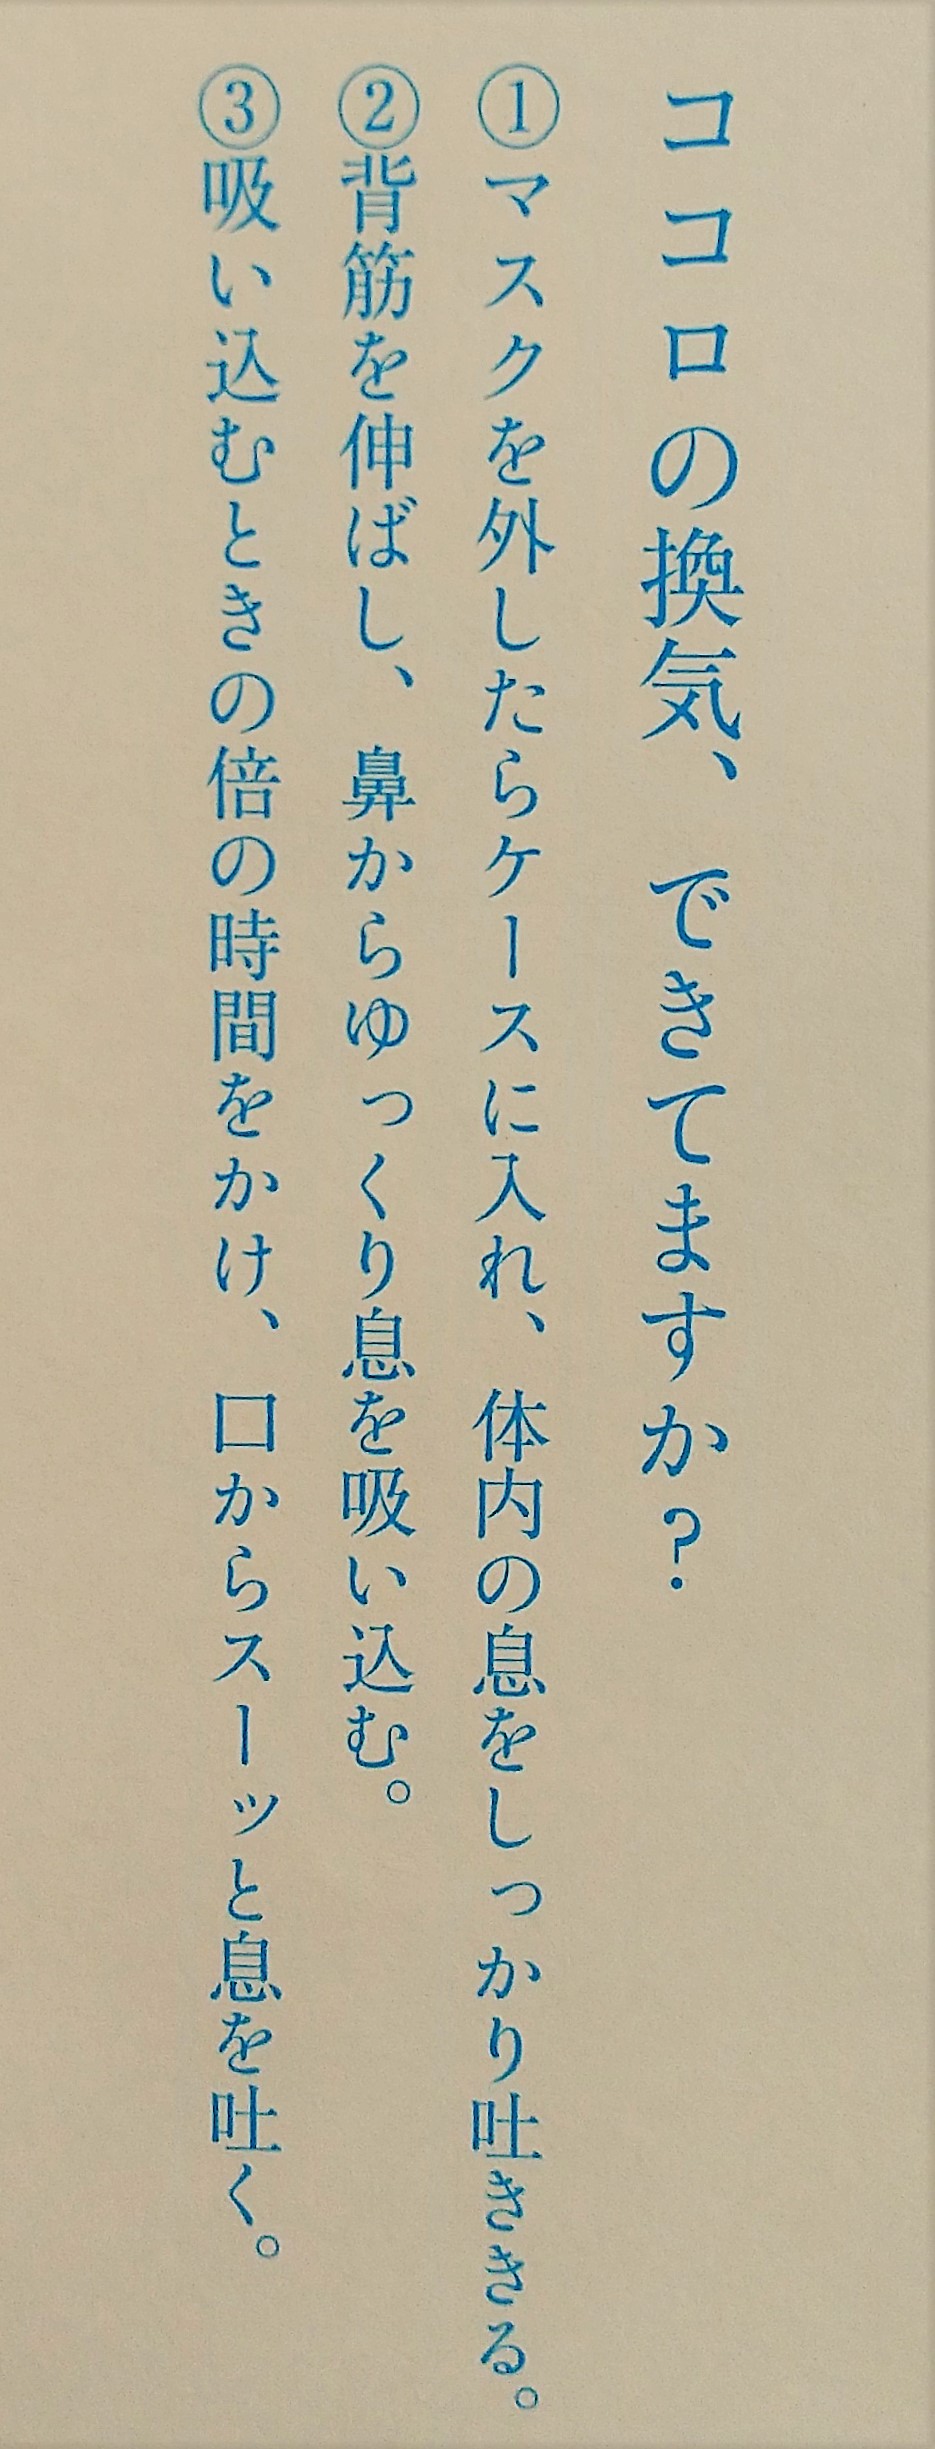 ココロの換気、できてますか？
①マスクを外したらケースに入れ、体内の息をしっかり吐ききる。
②背筋を伸ばし、鼻からゆっくり息を吸い込む。
③吸い込むときの倍の時間をかけ、口からスーッと息を吐く。